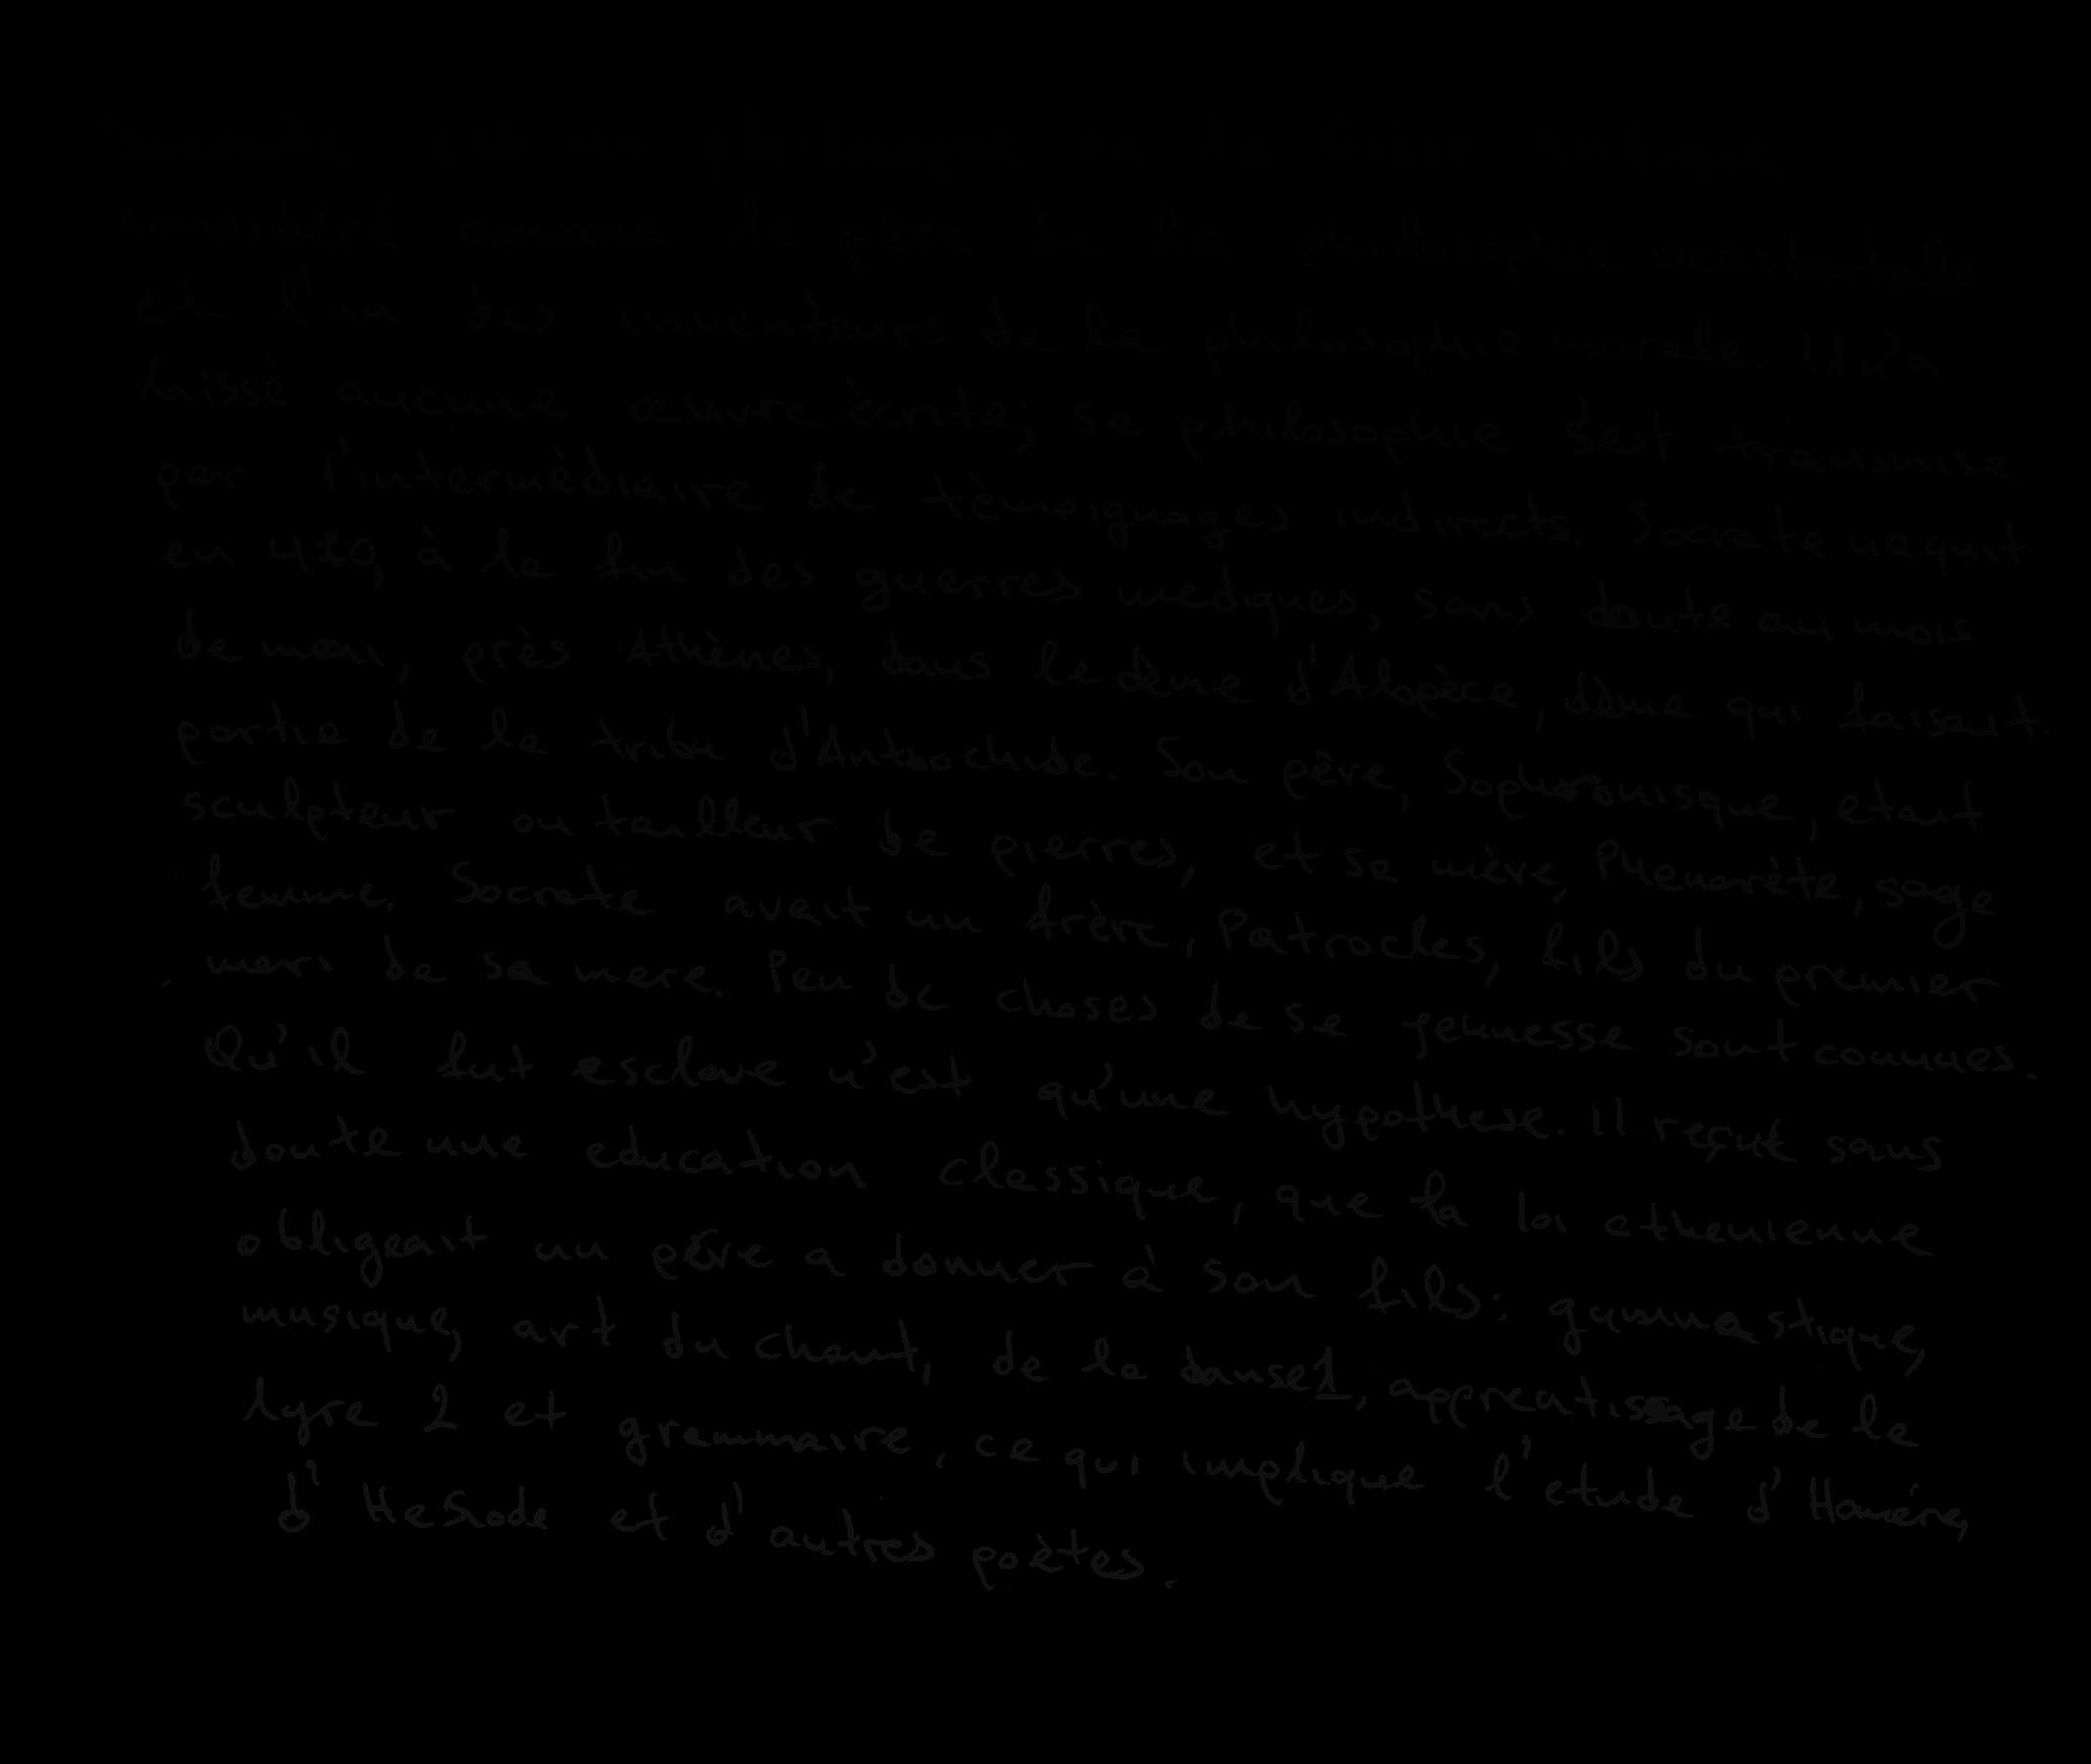 Socrate est un philosophe de la Grèce antique
considéré comme le père de la philosophie occidentale
et l'un des inventeurs de la philosophie morale. Il n'a
laissé aucune œuvre écrite; sa philosophie s'est transmise
par l'intermédiaire de témoignages indirects. Socrate naquit
en 470, à la fin des guerres mediques, sans doute au mois
de mai, près Athènes, dans le dème d'Alopèce, dème qui faisait.
partie de la tribu d'Antiochide. Son père, Sophronisque, etait
sculpteur ou tailleur de pierres, et sa mère, Phenarète, sage
femme. Socrate avait un frère, Patrocles, fils du premier
mari de sa mere. Peu de choses de sa jeunesse sont connues.
Qu'il fut esclave n'est qu'une hypothese. Il reçut sans
doute une education classique, que la loi athenienne
obligeait un père a donner à son fils: gymnastique,
musique, art du chant, de la danse1, apprentissage de la
lyre 2 et grammaire, ce qui implique l'etude d'Homère,
d'Hesiode et d'autres poètes.